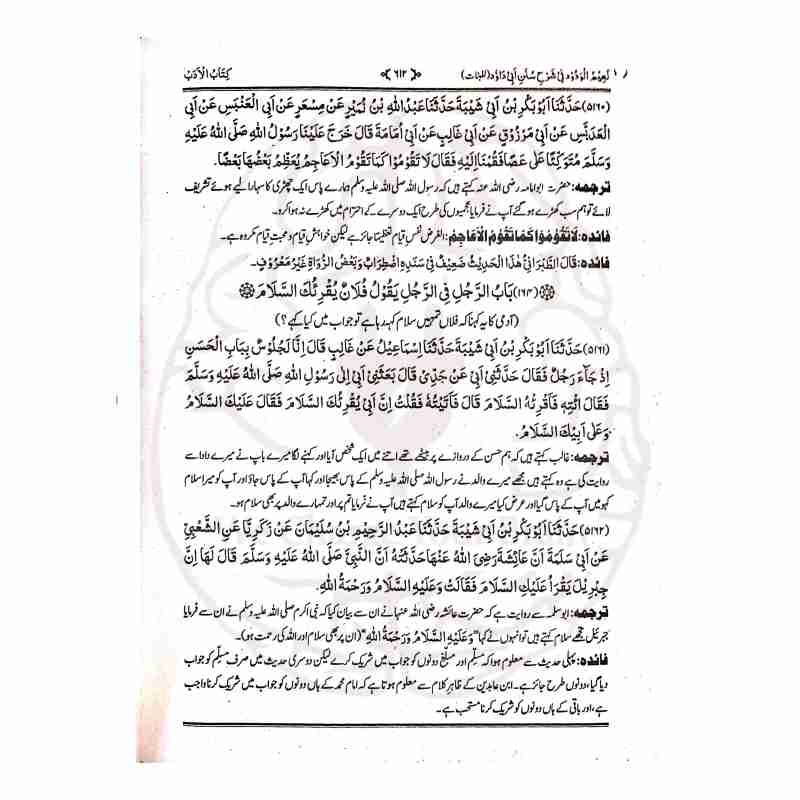 نَعِيْمُ الْوَدُوْد فِيْ شَرْحِ سُنَنِ اَبِيْ دَاوُد (للبنات) ﴿۶۱۲﴾ كِتَابُ الْاَدَبْ
(۵۱۶۰) حَدَّثَنَا اَبُوْ بَكْرِ بْنُ اَبِيْ شَيْبَةَ حَدَّثَنَا عَبْدُ اللهِ بْنُ نُمَيْرٍ عَنْ مِسْعَرٍ عَنْ اَبِي الْعَنْبَسِ عَنْ اَبِي
الْعَدَبَّسِ عَنْ اَبِيْ مَرْزُوْقٍ عَنْ اَبِيْ غَالِبٍ عَنْ اَبِيْ اُمَامَةَ قَالَ خَرَجَ عَلَيْنَا رَسُوْلُ اللهِ صَلَّى اللهُ عَلَيْهِ
وَسَلَّمَ مُتَوَكِّئًا عَلٰى عَصًا فَقُمْنَا اِلَيْهِ فَقَالَ لَا تَقُوْمُوْا كَمَا تَقُوْمُ الْاَعَاجِمُ يُعَظِّمُ بَعْضُهَا بَعْضًا.
ترجمه: حضرت ابوامامہ رضی اللہ عنہ کہتے ہیں کہ رسول اللہ صلی اللہ علیہ وسلم ہمارے پاس ایک چھڑی کا سہارا لیے ہوئے تشریف
لائے تو ہم سب کھڑے ہو گئے آپ نے فرمایا عجمیوں کی طرح ایک دوسرے کے احترام میں کھڑے نہ ہوا کرو۔
فائدہ: لَا تَقُوْمُوْا كَمَا تَقُوْمُ الْاَعَاجِمُ: الغرض نفسِ قیام تعظیماً جائز ہے لیکن خواہشِ قیام و محبتِ قیام مکروہ ہے۔
فائدہ: قَالَ الطَّبَرَانِيُّ هٰذَا الْحَدِيْثُ ضَعِيْفٌ فِيْ سَنَدِهٖ اِضْطِرَابٌ وَبَعْضُ الرُّوَاةِ غَيْرُ مَعْرُوْفٍ۔
(۱۶۴) بَابُ الرَّجُلِ فِي الرَّجُلِ يَقُوْلُ فُلَانٌ يُقْرِئُكَ السَّلَامَ
(آدمی کا یہ کہنا کہ فلاں تمہیں سلام کہہ رہا ہے تو جواب میں کیا کہے؟)
(۵۱۶۱) حَدَّثَنَا اَبُوْ بَكْرِ بْنُ اَبِيْ شَيْبَةَ حَدَّثَنَا اِسْمَاعِيْلُ عَنْ غَالِبٍ قَالَ اِنَّا لَجُلُوْسٌ بِبَابِ الْحَسَنِ
اِذْ جَآءَ رَجُلٌ فَقَالَ حَدَّثَنِيْ اَبِيْ عَنْ جَدِّيْ قَالَ بَعَثَنِيْ اَبِيْ اِلٰى رَسُوْلِ اللهِ صَلَّى اللهُ عَلَيْهِ وَسَلَّمَ
فَقَالَ ائْتِهٖ فَاَقْرِئْهُ السَّلَامَ قَالَ فَاَتَيْتُهٗ فَقُلْتُ اِنَّ اَبِيْ يُقْرِئُكَ السَّلَامَ فَقَالَ عَلَيْكَ السَّلَامُ
وَعَلٰى اَبِيْكَ السَّلَامُ.
ترجمه: غالب کہتے ہیں کہ ہم حسن کے دروازے پر بیٹھے تھے اتنے میں ایک شخص آیا اور کہنے لگا میرے باپ نے میرے دادا سے
روایت کی ہے وہ کہتے ہیں مجھے میرے والد نے رسول اللہ صلی اللہ علیہ وسلم کے پاس بھیجا اور کہا آپ کے پاس جاؤ اور آپ کو میرا سلام
کہو میں آپ کے پاس گیا اور عرض کیا میرے والد آپ کو سلام کہتے ہیں آپ نے فرمایا تم پر اور تمہارے والد پر بھی سلام ہو۔
(۵۱۶۲) حَدَّثَنَا اَبُوْ بَكْرِ بْنُ اَبِيْ شَيْبَةَ حَدَّثَنَا عَبْدُ الرَّحِيْمِ بْنُ سُلَيْمَانَ عَنْ زَكَرِيَّا عَنِ الشَّعْبِيِّ
عَنْ اَبِيْ سَلَمَةَ اَنَّ عَائِشَةَ رَضِيَ اللهُ عَنْهَا حَدَّثَتْهُ اَنَّ النَّبِيَّ صَلَّى اللهُ عَلَيْهِ وَسَلَّمَ قَالَ لَهَا اِنَّ
جِبْرِيْلَ يَقْرَأُ عَلَيْكِ السَّلَامَ فَقَالَتْ وَعَلَيْهِ السَّلَامُ وَرَحْمَةُ اللهِ.
ترجمه: ابوسلمہ سے روایت ہے کہ حضرت عائشہ رضی اللہ عنہا نے ان سے بیان کیا کہ نبی اکرم صلی اللہ علیہ وسلم نے ان سے فرمایا
جبرئیل تجھے سلام کہتے ہیں تو انہوں نے کہا "وَعَلَيْهِ السَّلَامُ وَرَحْمَةُ اللهِ" (ان پر بھی سلام اور اللہ کی رحمت ہو)۔
فائدہ: پہلی حدیث سے معلوم ہوا کہ مسلِّم اور مبلِّغ دونوں کو جواب میں شریک کرے لیکن دوسری حدیث میں صرف مسلِّم کو جواب
دیا گیا، دونوں طرح جائز ہے۔ ابن عابدین کے ظاہرِ کلام سے معلوم ہوتا ہے کہ امام محمد کے ہاں دونوں کو جواب میں شریک کرنا واجب
ہے، اور باقی کے ہاں دونوں کو شریک کرنا مستحب ہے۔